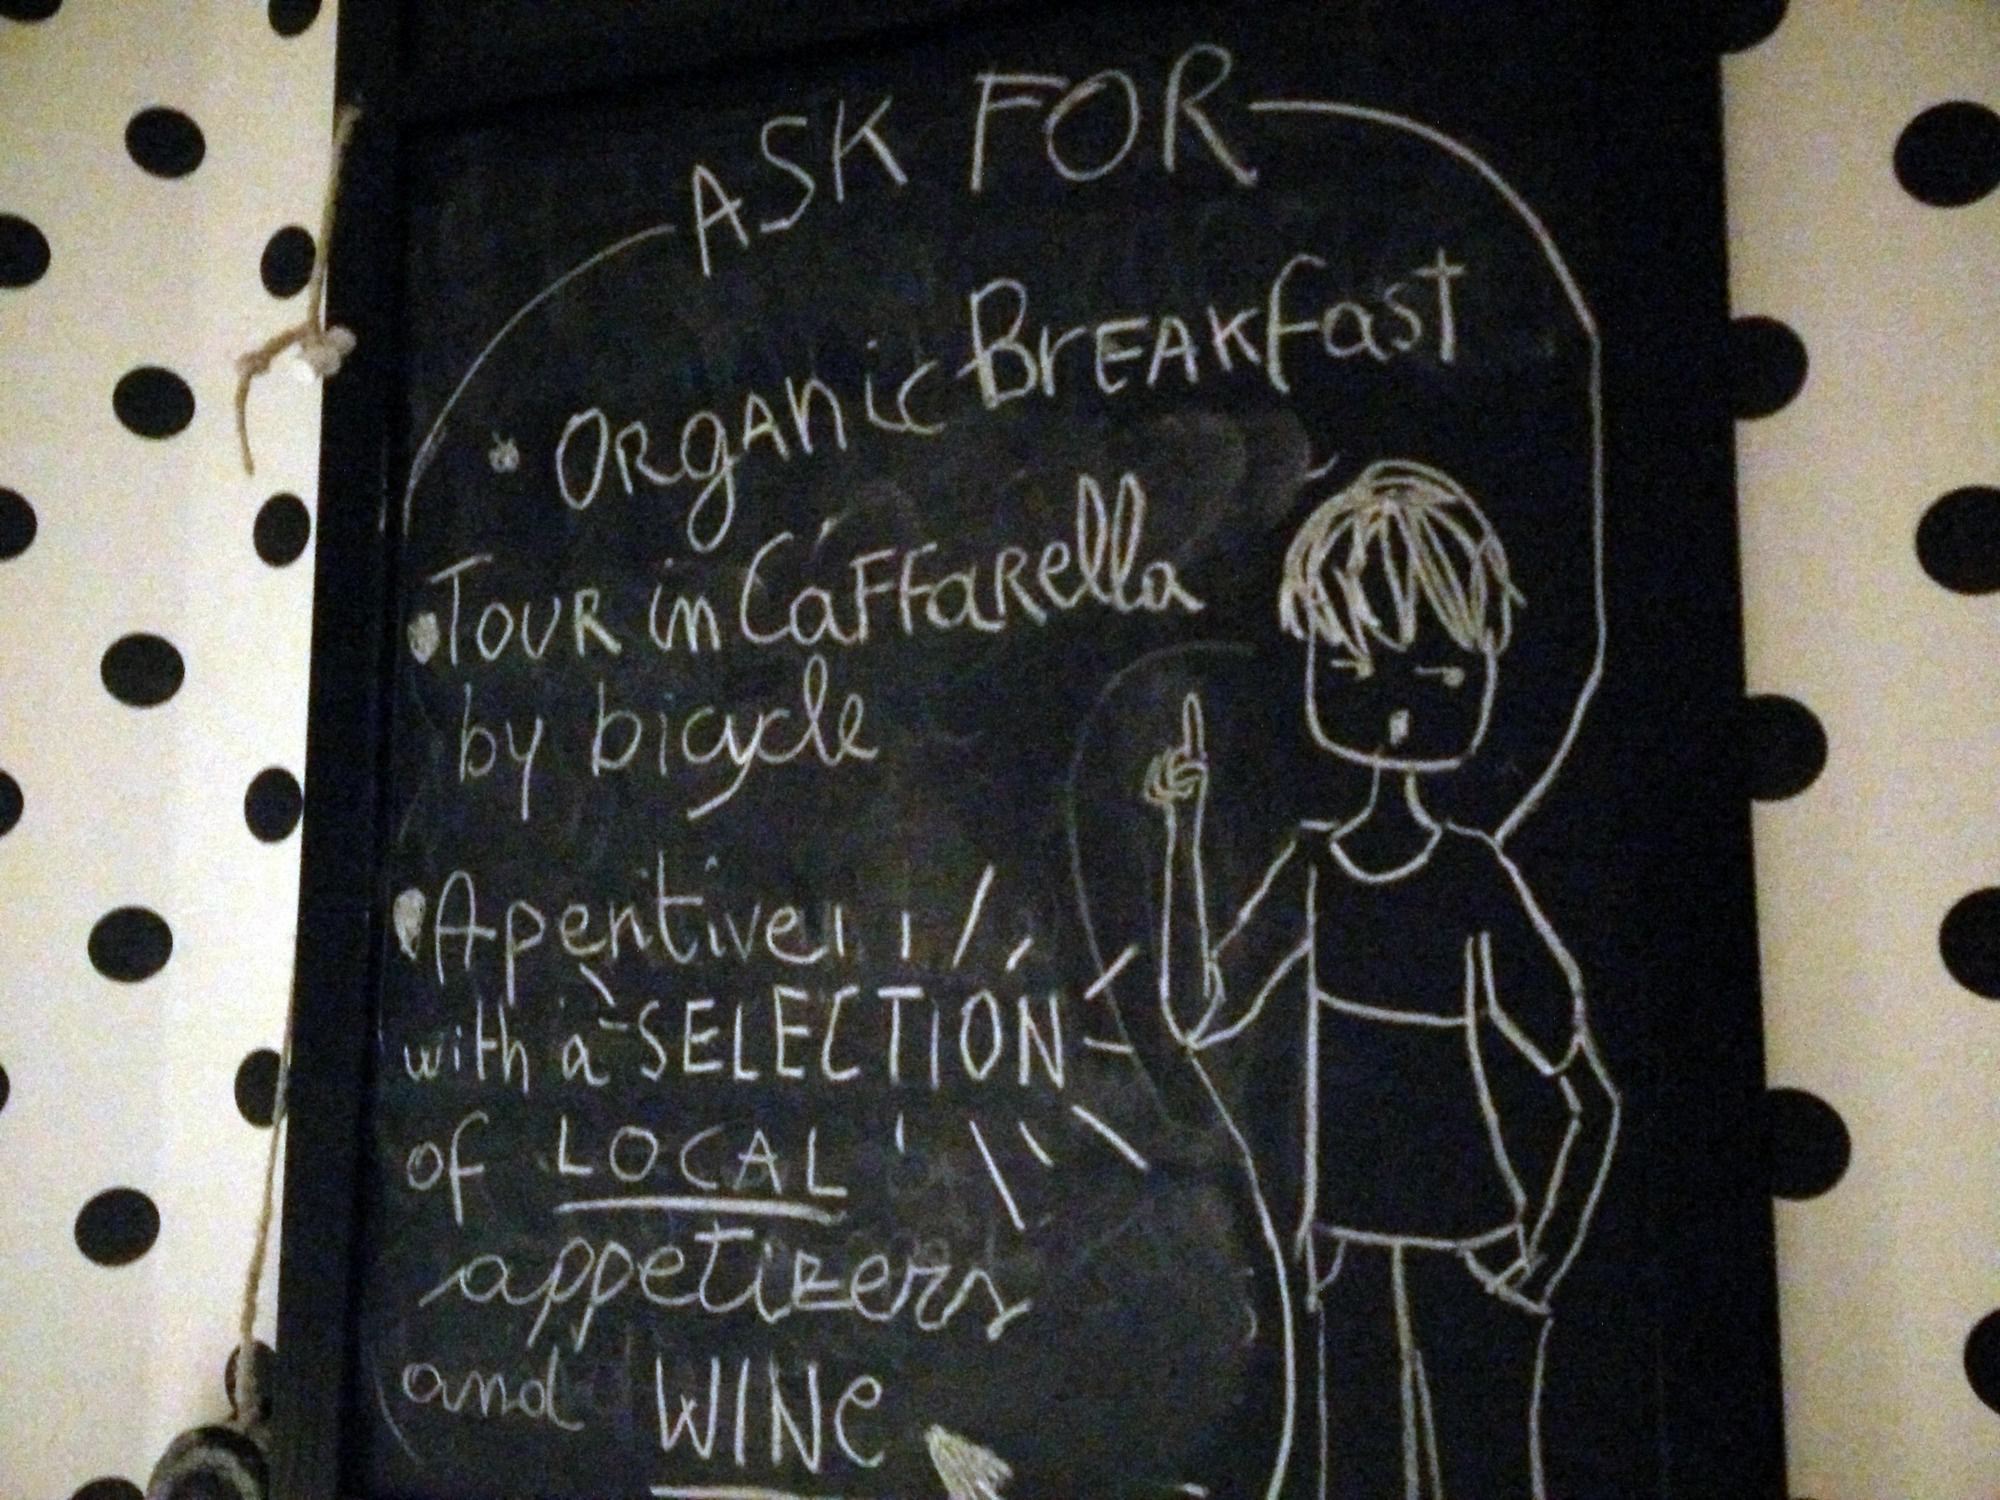 ASK FOR
• Organic BrEAKfast
• Tour in Caffarella
by bicycle
• Aperitive
with a SELECTION
of LOCAL
appetizers
and WINe